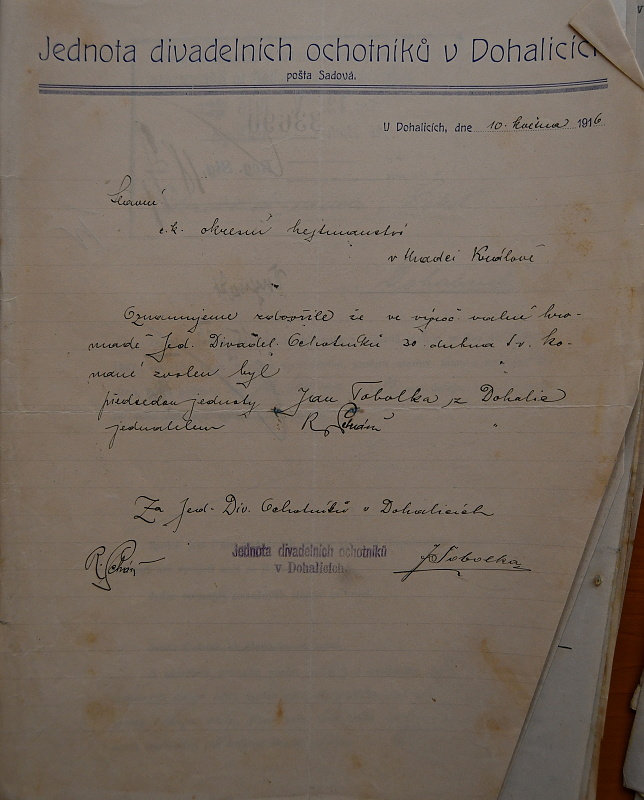 Jednota divadelních ochotníků v Dohalicích
pošta Sadová.
U Dohalicích, dne 10. května 1916
Slavné
c.k. okresní hejtmanství
v Hradci Králové
Oznamujeme zdvořile že ve výroč. valné hro-
madě Jed. Divadel. Ochotníků 30. dubna t.r. ko-
nané zvolen byl
předsedou jednoty Jan Tobolka z Dohalic
jednatelem R. "
Za Jed. Div. Ochotníků v Dohalicích
R.
Jednota divadelních ochotníků
v Dohalicích.
J Tobolka